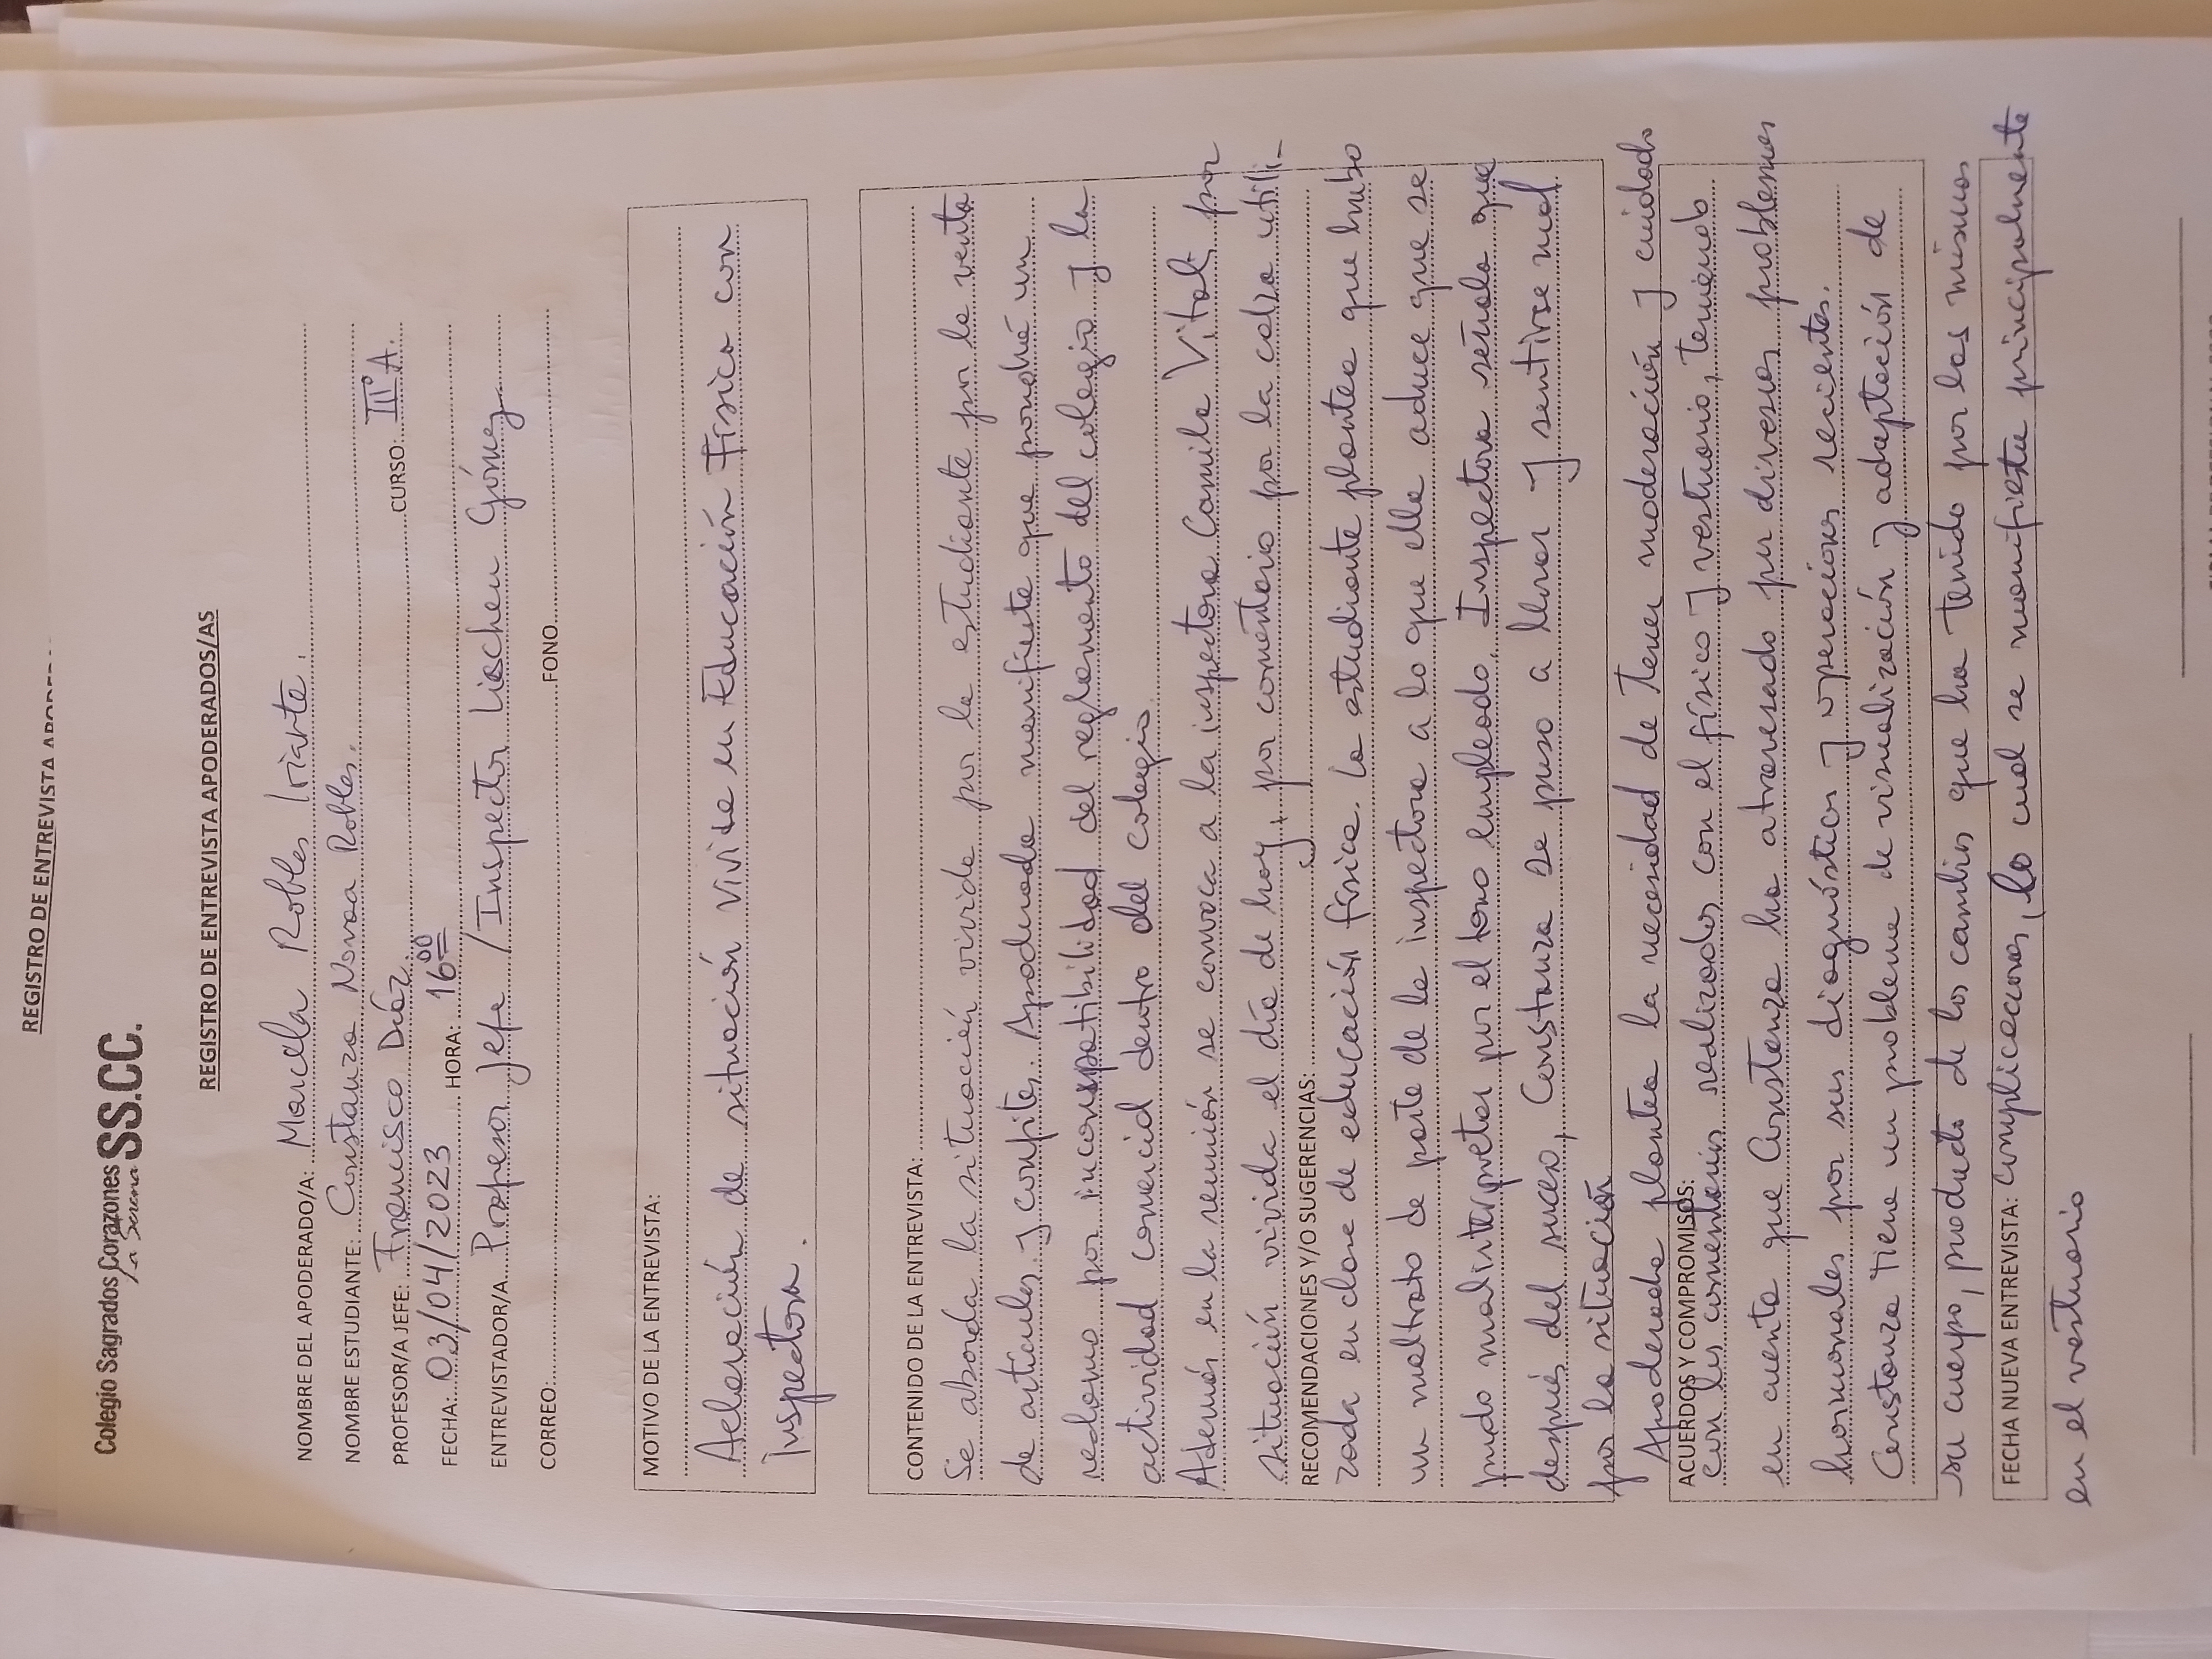 REGISTRO DE ENTREVISTA
Colegio Sagrados Corazones SS.CC.
La Serena
REGISTRO DE ENTREVISTA APODERADOS/AS
NOMBRE DEL APODERADO/A: Marcela Robles Iriarte.
NOMBRE ESTUDIANTE: Constanza Novoa Robles.
PROFESOR/A JEFE: Francisco Díaz CURSO: III°A.
FECHA: 03/04/2023 HORA: 16:00
ENTREVISTADOR/A Profesor Jefe / Inspector Lischen Gómez
CORREO: FONO
MOTIVO DE LA ENTREVISTA:
Aclaración de situación vivida en Educación Física con
Inspectora.
CONTENIDO DE LA ENTREVISTA:
Se aborda la situación vivida por la estudiante por la venta
de artículos y confites. Apoderada manifiesta que pondrá un
reclamo por incompatibilidad del reglamento del colegio y la
actividad comercial dentro del colegio.
Además en la reunión se convoca a la inspectora Camila Vital por
situación vivida el día de hoy, por comentario por la calza utili-
RECOMENDACIONES Y/O SUGERENCIAS:
zada en clase de educación física. La estudiante plantea que hubo
un maltrato de parte de la inspectora a lo que ella aduce que se
pudo malinterpretar por el tono empleado. Inspectora señala que
después del suceso, Constanza se puso a llorar y sentirse mal
por la situación
Apoderada plantea la necesidad de tener moderación y cuidado
ACUERDOS Y COMPROMISOS:
con los comentarios realizados con el físico y vestuario, teniendo
en cuenta que Constanza ha atravesado por diversos problemas
hormonales por sus diagnósticos y operaciones recientes.
Constanza tiene un problema de visualización y adaptación de
su cuerpo, producto de los cambios que ha tenido por las mismas
FECHA NUEVA ENTREVISTA: complicaciones, lo cual se manifiesta principalmente
en el vestuario